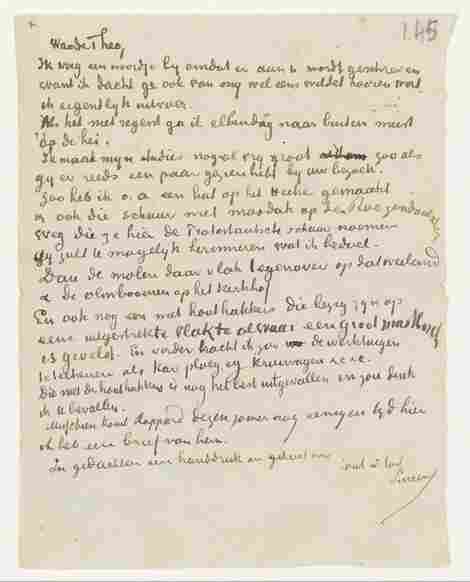 Waarde Theo,
Ik voeg een woordje bij omdat er aan U wordt geschreven
want ik dacht ge ook van mij wel eens zoudet hooren wat
ik eigentlijk uitvoer.
Als het niet regent ga ik elken dag naar buiten meest
op de hei.
Ik maak mijn studies nogal vrij groot zooals
gij er reeds een paar gezien hebt bij uw bezoek.
Zoo heb ik o.a. een hut op het Heike gemaakt
en ook die schuur met mosdak op den Roozendaalschen
weg die ze hier de Protestantsche schuur noemen
Gij zult U mogelijk herinneren wat ik bedoel.
Dan de molen daar vlak tegenover op dat weiland
& de olmboomen op het Kerkhof
En ook nog een met houthakkers die bezig zijn op
eene uitgestrekte vlakte alwaar een groot mastbosch
is geveld. En verder tracht ik zoo de werktuigen
te teekenen als kar ploeg eg kruiwagen &c &c.
Die met de houthakkers is nog het best uitgevallen en zou denk
ik U bevallen.
Misschien komt Rappard dezen zomer nog eenigen tijd hier
ik heb een brief van hem.
In gedachten een handdruk en geloof me
Vincent
145